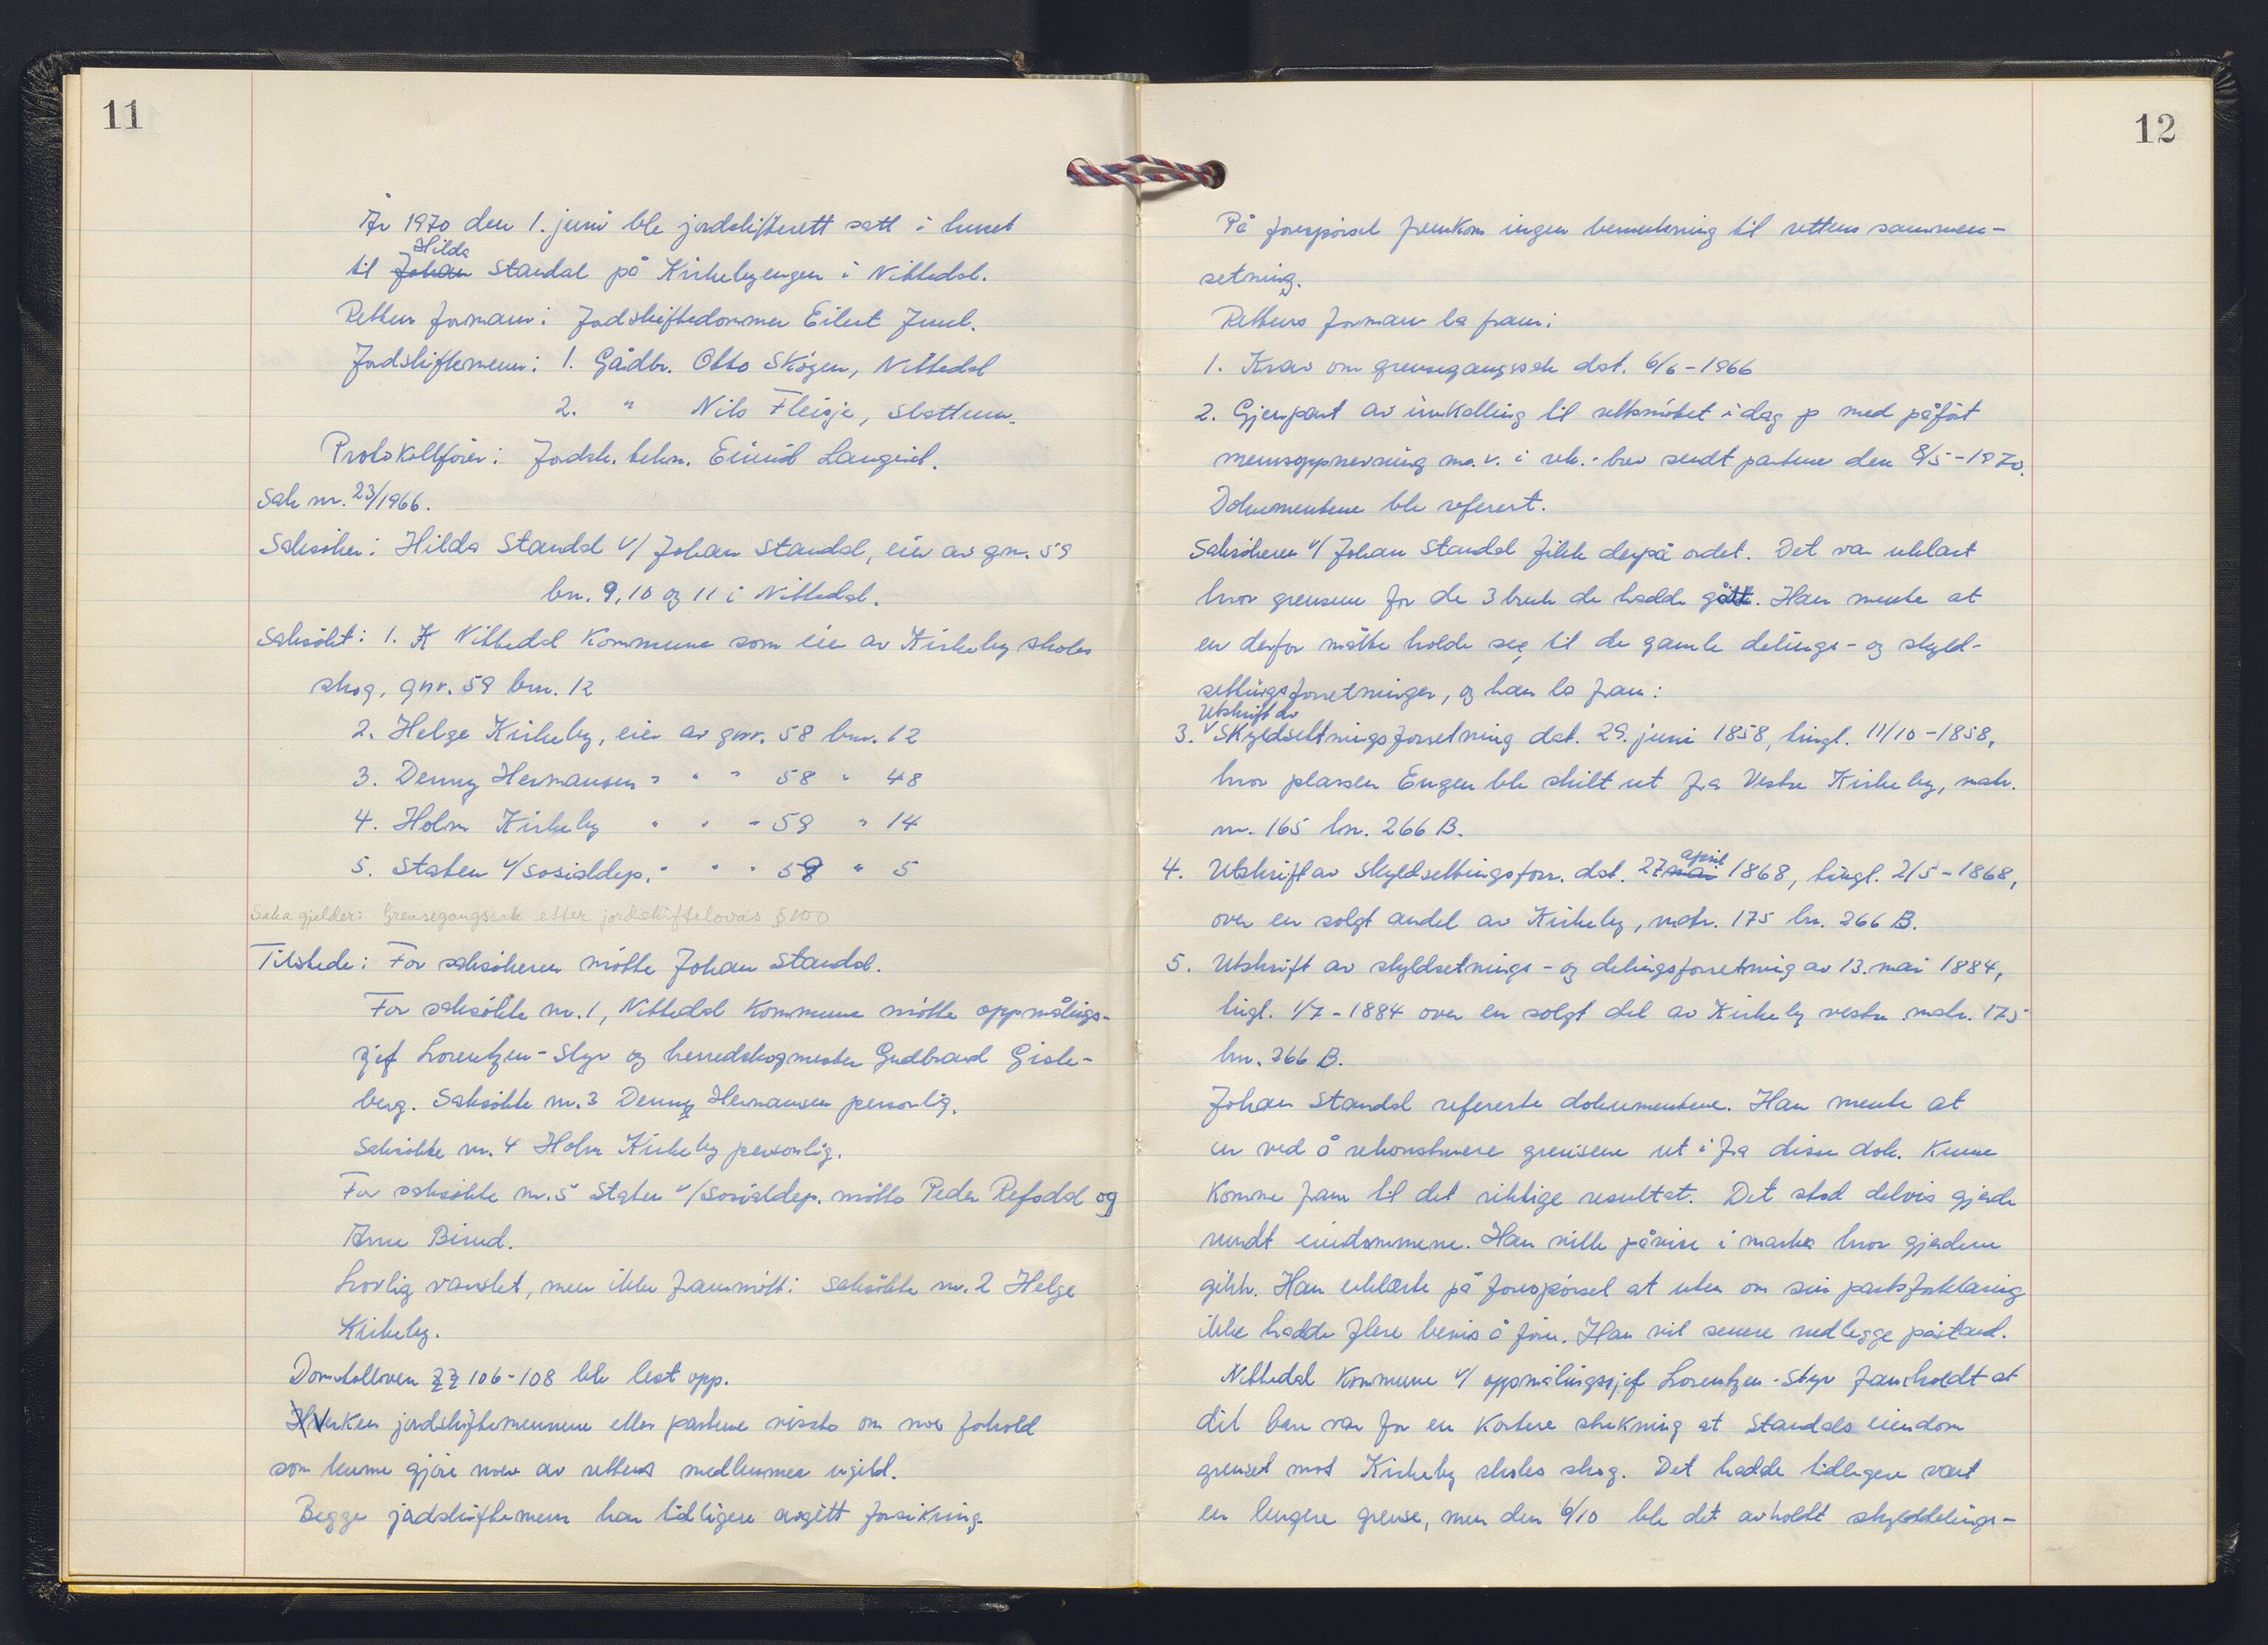 11
År 1970 den 1. juni ble jordskifterett satt i huset
Hilda
til Johan Standal på Kirkebyengen i Nittedal.
Rettens formann: Jordskiftedommer Eilert Juul.
Jordskiftemenn: 1. Gårdbr. Otto Skøgen, Nittedal
2. " Nils Fleisje, Slattum.
Protokollfører: Jordsk. tekn. Eivind
Sak nr. 23/1966.
Saksøker: Hilda Standal v/ Johan Standal, eier av gnr. 59
bnr. 9, 10 og 11 i Nittedal.
Saksøkt: 1. Nittedal Kommune som eier av Kirkeby skoles
skog, gnr. 59 bnr. 12
2. Helge Kirkeby, eier av gnr. 58 bnr. 12
3. Denny Hermansen " " " 58 " 48
4. Holm Kirkeby " " " 59 " 14
5. Staten v/ Sosialdep. " " " 58 " 5
Saka gjelder: Grensegangssak etter jordskiftelovas § 100
Tilstede: For saksøkeren møtte Johan Standal.
For saksøkte nr. 1, Nittedal Kommune møtte oppmålings-
sjef Lorentzen-Styr og herredskogmester Gudbrand Gisle-
berg. Saksøkte nr. 3 Denny Hermansen personlig.
Saksøkte nr. 4 Holm Kirkeby personlig.
For saksøkte nr. 5 Staten v/ Sosialdep. møtte Peder Refsdal og
Arne Birud.
Lovlig varslet, men ikke frammøtt: saksøkte nr. 2 Helge
Kirkeby.
Domstolloven §§ 106-108 ble lest opp.
Verken jordskiftemennene eller partene visste om noe forhold
som kunne gjøre noen av rettens medlemmer ugild.
Begge jordskiftemenn har tidligere avgitt forsikring.
12
På forespørsel fremkom ingen bemerkning til rettens sammen-
setning.
Rettens formann la fram:
1. Krav om grensegangssak dat. 6/6-1966
2. Gjenpart av innkalling til rettsmøtet i dag p med påført
mennsoppnevning m.v. i rek.-brev sendt partene den 8/5-1970.
Dokumentene ble referert.
Saksøkeren v/ Johan Standal fikk derpå ordet. Det var uklart
hvor grensene for de 3 bruk de hadde gått. Han mente at
en derfor måtte holde seg til de gamle delings- og skyld-
settingsforretninger, og han la fram:
Utskrift av
3. Skyldsettningsforretning dat. 29. juni 1858, tingl. 11/10-1858,
hvor plassen Engen ble skilt ut fra Vestre Kirkeby, matr.
nr. 165 lnr. 266 B.
april
4. Utskrift av Skyldsettingsforr. dat. 27 mai 1868, tingl. 2/5-1868,
over en solgt andel av Kirkeby, matr. 175 lnr. 266 B.
5. Utskrift av skyldsetnings- og delingsforretning av 13. mai 1884,
tingl. 1/7-1884 over en solgt del av Kirkeby vestre matr. 175
lnr. 266 B.
Johan Standal refererte dokumentene. Han mente at
en ved å rekonstruere grensene ut i fra disse dok. kunne
komme fram til det riktige resultat. Det stod delvis gjerde
rundt eiendommene. Han ville påvise i marka hvor gjerdene
gikk. Han erklærte på forespørsel at uten om sin partsforklaring
ikke hadde flere bevis å føre. Han vil senere nedlegge påstand.
Nittedal Kommune v/ oppmålingssjef Lorentzen-Styr framholdt at
det bare var for en kortere strekning at Standals eiendom
grenset mot Kirkeby skoles skog. Det hadde tidligere vært
en lengere grense, men den 6/10 ble det avholdt skylddelings-